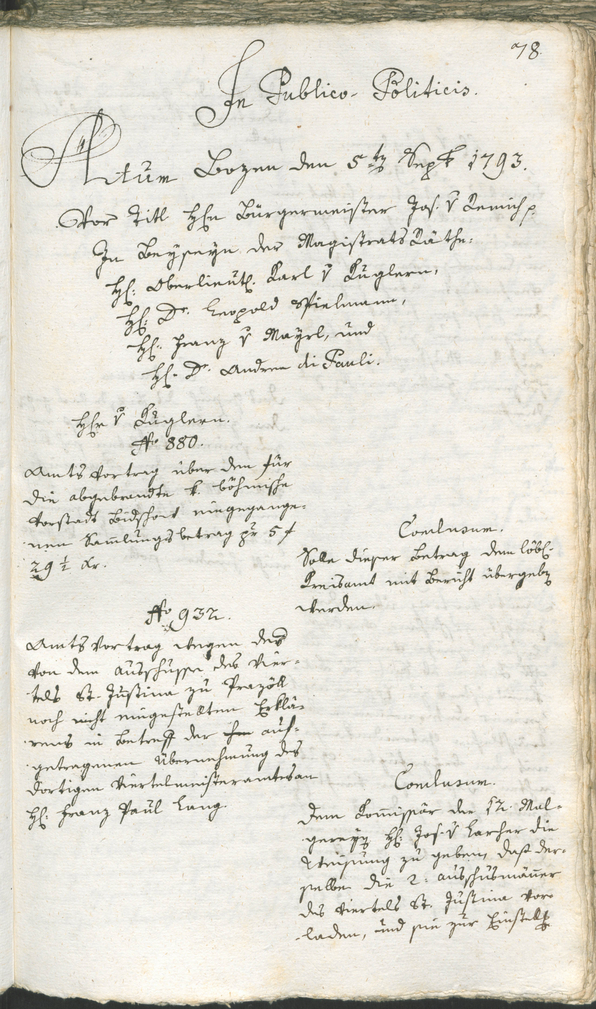 78.
In Publico-Politicis.
Actum Bozen den 5ten Sept 1793.
Vor Titl Hhn Bürgermeister Jos. v Remich p
In Beyseyn der Magistrats Räthe:
Hh. Oberlieut. Karl v Kuglern,
Hh. Dr. Leopold Spielmann,
Hh. Franz v Mayrl, und
Hh. Dr. Andreas di Pauli.
Hhr v Kuglern.
No 880.
Amts Vortrag über den für
die abgebrandte k. böhmische
Vorstadt Bidschow eingegange-
nen Sammlungsbetrag pr 5 f
29 1/2 kr.
Conclusum.
Solle dieser Betrag dem löbl.
Kreisamt mit Bericht übergeben
werden.
No 932.
Amts Vortrag wegen des
von dem Ausschusse des Vier-
tels St. Justina zu Prazöll
noch nicht eingestellten Erklä-
rens in Betreff der auf-
getragenen Übernehmung des
dortigen Viertelmeisteramtes an
Hh. Franz Paul Lang.
Conclusum.
Dem Kommissär der 12 Mal-
greyen Hh. Jos. v Larcher die
Weisung zu geben, daß der-
selbe die 2: Ausschusmäner
des Viertels St. Justina vor-
laden, und sie zur Einstell